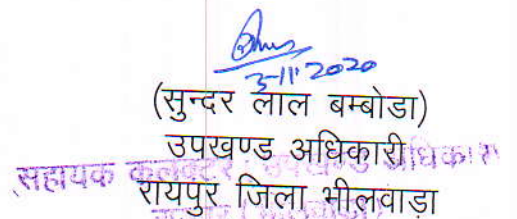 3-11-2020
(सुन्दर लाल बम्बोडा)
उपखण्ड अधिकारी
सहायक कलक्टर उपखण्ड अधिकारी
रायपुर जिला भीलवाडा